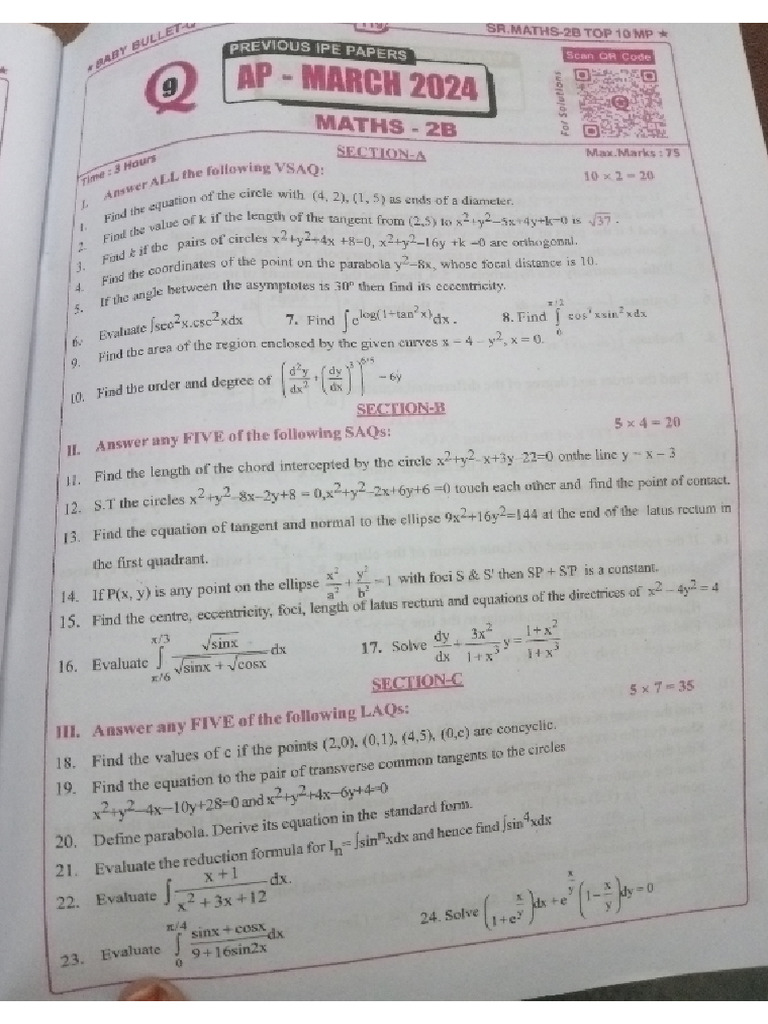 ★ BABY BULLET-Q
SR.MATHS-2B TOP 10 MP ★
PREVIOUS IPE PAPERS
Scan QR Code
Q 9
AP - MARCH 2024
For Solutions
MATHS - 2B
SECTION-A
Time : 3 Hours
Max.Marks : 75
I. Answer ALL the following VSAQ:
10 × 2 = 20
1. Find the equation of the circle with (4, 2), (1, 5) as ends of a diameter.
2. Find the value of k if the length of the tangent from (2,5) to x²+y²–5x+4y+k=0 is √37 .
3. Find k if the pairs of circles x²+y²+4x +8=0, x²+y²–16y +k =0 are orthogonal.
4. Find the coordinates of the point on the parabola y²=8x, whose focal distance is 10.
5. If the angle between the asymptotes is 30° then find its eccentricity.
6. Evaluate ∫sec²x.csc²xdx 7. Find ∫e^log(1+tan²x)dx . 8. Find ∫₀^π/2 cos xsin²xdx
9. Find the area of the region enclosed by the given curves x = 4 – y², x = 0.
10. Find the order and degree of [d²y/dx² + (dy/dx)³]^6/5 = 6y
SECTION-B
II. Answer any FIVE of the following SAQs:
5 × 4 = 20
11. Find the length of the chord intercepted by the circle x²+y²–x+3y–22=0 onthe line y = x – 3
12. S.T the circles x²+y²–8x–2y+8 = 0,x²+y²–2x+6y+6 =0 touch each other and find the point of contact.
13. Find the equation of tangent and normal to the ellipse 9x²+16y²=144 at the end of the latus rectum in
the first quadrant.
14. If P(x, y) is any point on the ellipse x²/a² + y²/b² = 1 with foci S & S' then SP + S'P is a constant.
15. Find the centre, eccentricity, foci, length of latus rectum and equations of the directrices of x² – 4y² = 4
16. Evaluate ∫π/6^π/3 √sinx/(√sinx + √cosx) dx 17. Solve dy/dx + 3x²/(1+x³) y = (1+x²)/(1+x³)
SECTION-C
III. Answer any FIVE of the following LAQs:
5 × 7 = 35
18. Find the values of c if the points (2,0), (0,1), (4,5), (0,c) are concyclic.
19. Find the equation to the pair of transverse common tangents to the circles
x²+y²–4x–10y+28=0 and x²+y²+4x–6y+4=0
20. Define parabola. Derive its equation in the standard form.
21. Evaluate the reduction formula for Iₙ= ∫sinⁿxdx and hence find ∫sin⁴xdx
22. Evaluate ∫ (x+1)/(x² + 3x + 12) dx.
23. Evaluate ∫₀^π/4 (sinx + cosx)/(9+16sin2x) dx 24. Solve (1+e^x/y)dx +e^x/y (1–x/y)dy=0